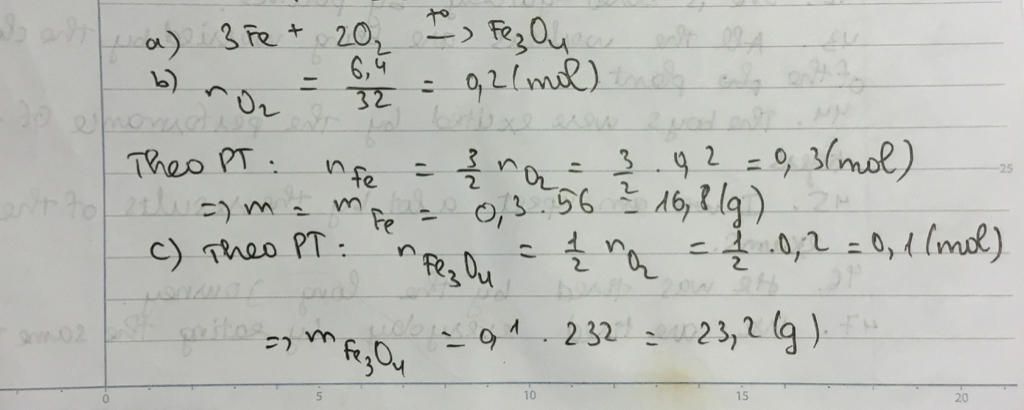 a) 3Fe + 2O₂ —t⁰→ Fe₃O₄
b) nO₂ = 6,4/32 = 0,2 (mol)
Theo PT : nFe = 3/2 nO₂ = 3/2 . 0,2 = 0,3 (mol)
=> m = mFe = 0,3 . 56 = 16,8 (g)
c) Theo PT : nFe₃O₄ = 1/2 nO₂ = 1/2 . 0,2 = 0,1 (mol)
=> mFe₃O₄ = 0,1 . 232 = 23,2 (g).
25
0 5 10 15 20